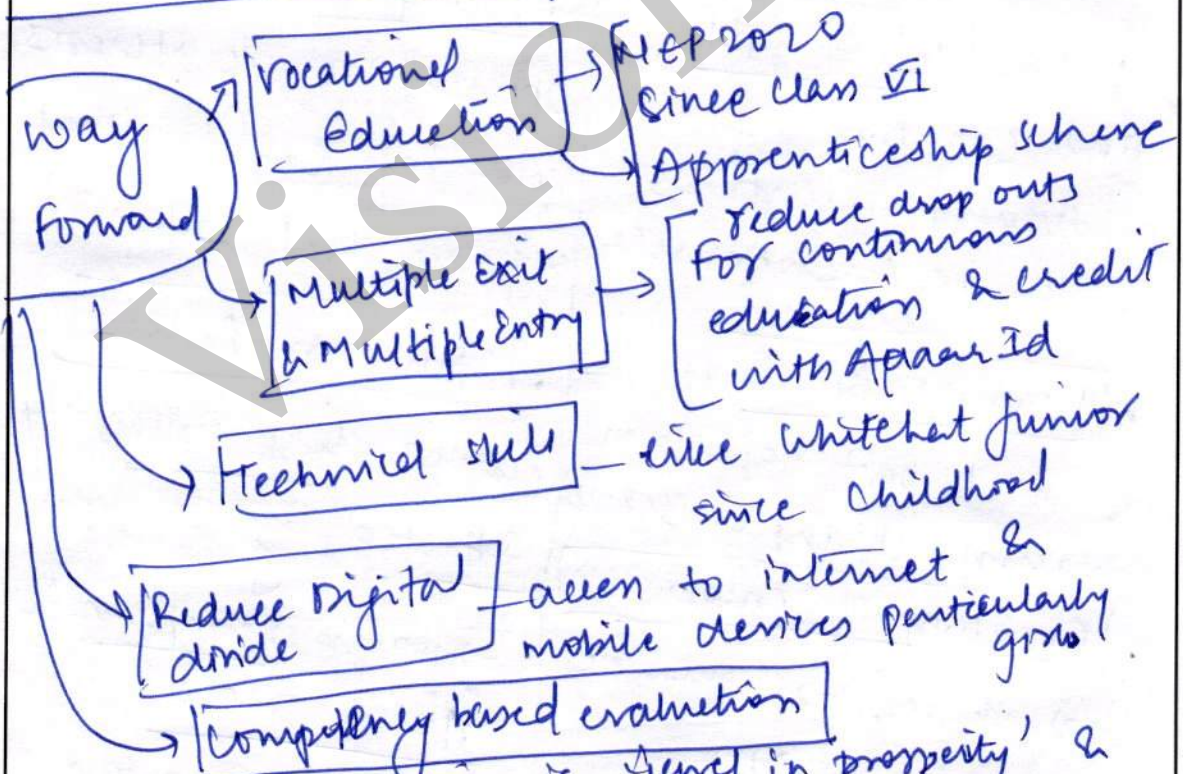 Way
Forward
Vocational
Education
NEP 2020
Since Class VI
Apprenticeship scheme
Multiple Exit
& Multiple Entry
reduce drop outs
For continuous
education & credit
with Apaar Id
Technical skills
like Whitehat Junior
since Childhood
Reduce Digital
divide
access to internet &
mobile devices particularly
girls
Competency based evaluation
in prosperity' &
Vision